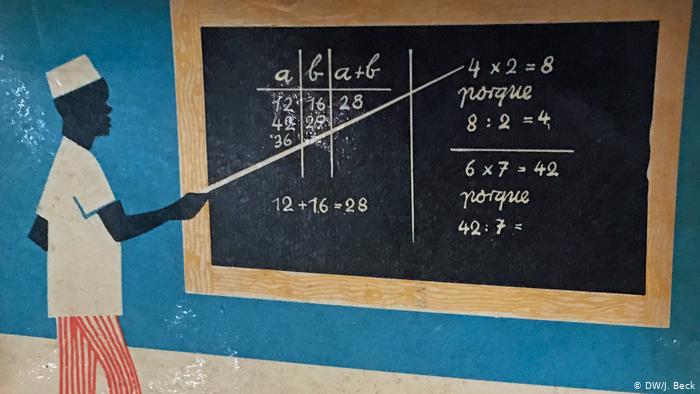 a b a+b
12 16 28
42 29
36
12+16=28
4 x 2 = 8
porque
8 : 2 = 4
6 x 7 = 42
porque
42 : 7 =
© DW/J. Beck